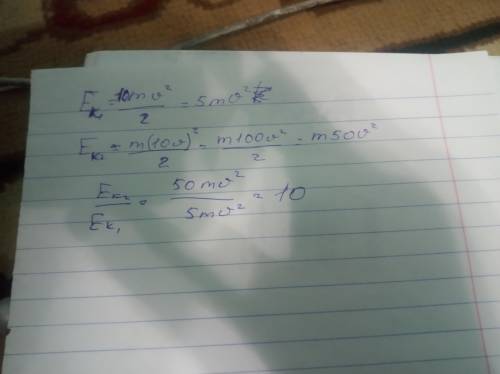 E_K₁ = 10mv²/2 = 5mv²
E_K₂ = m(10v)²/2 = m100v²/2 = m50v²
E_K₂/E_K₁ = 50mv²/5mv² = 10